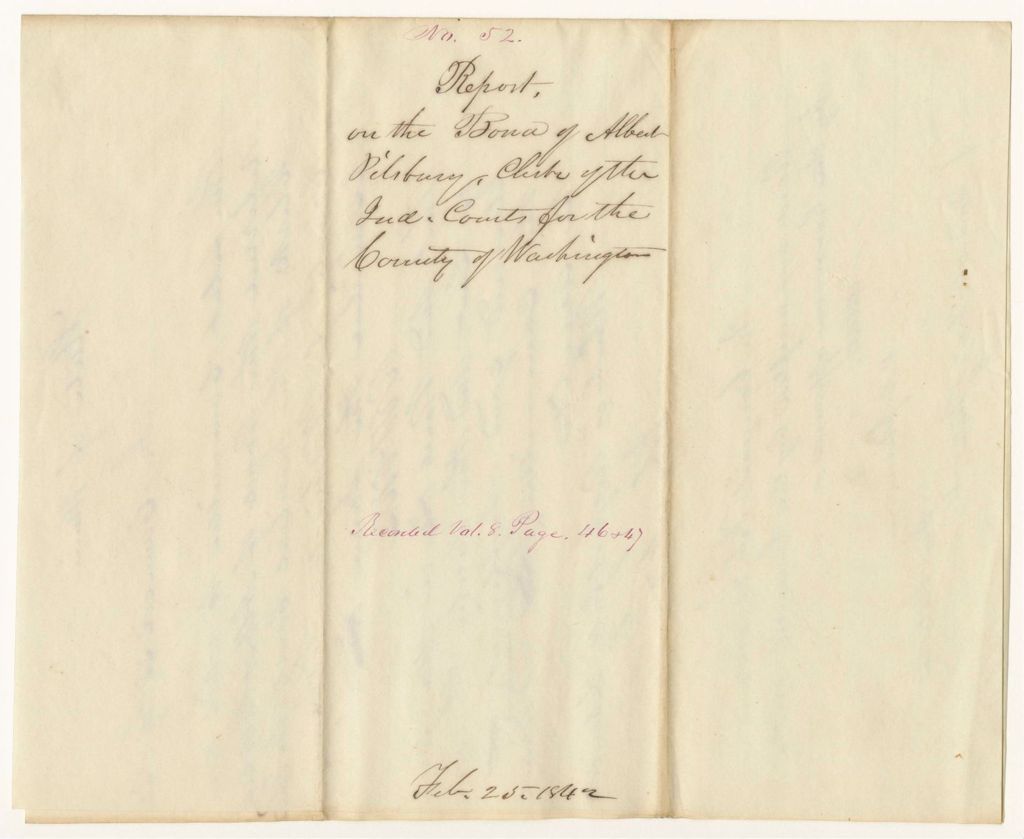 No. 52.
Report,
on the Bond of Albert
Pilsbury, Clerk of the
Jud. Courts for the
County of Washington
Recorded Vol. 8. Page. 46 & 47
Feb. 25. 1842